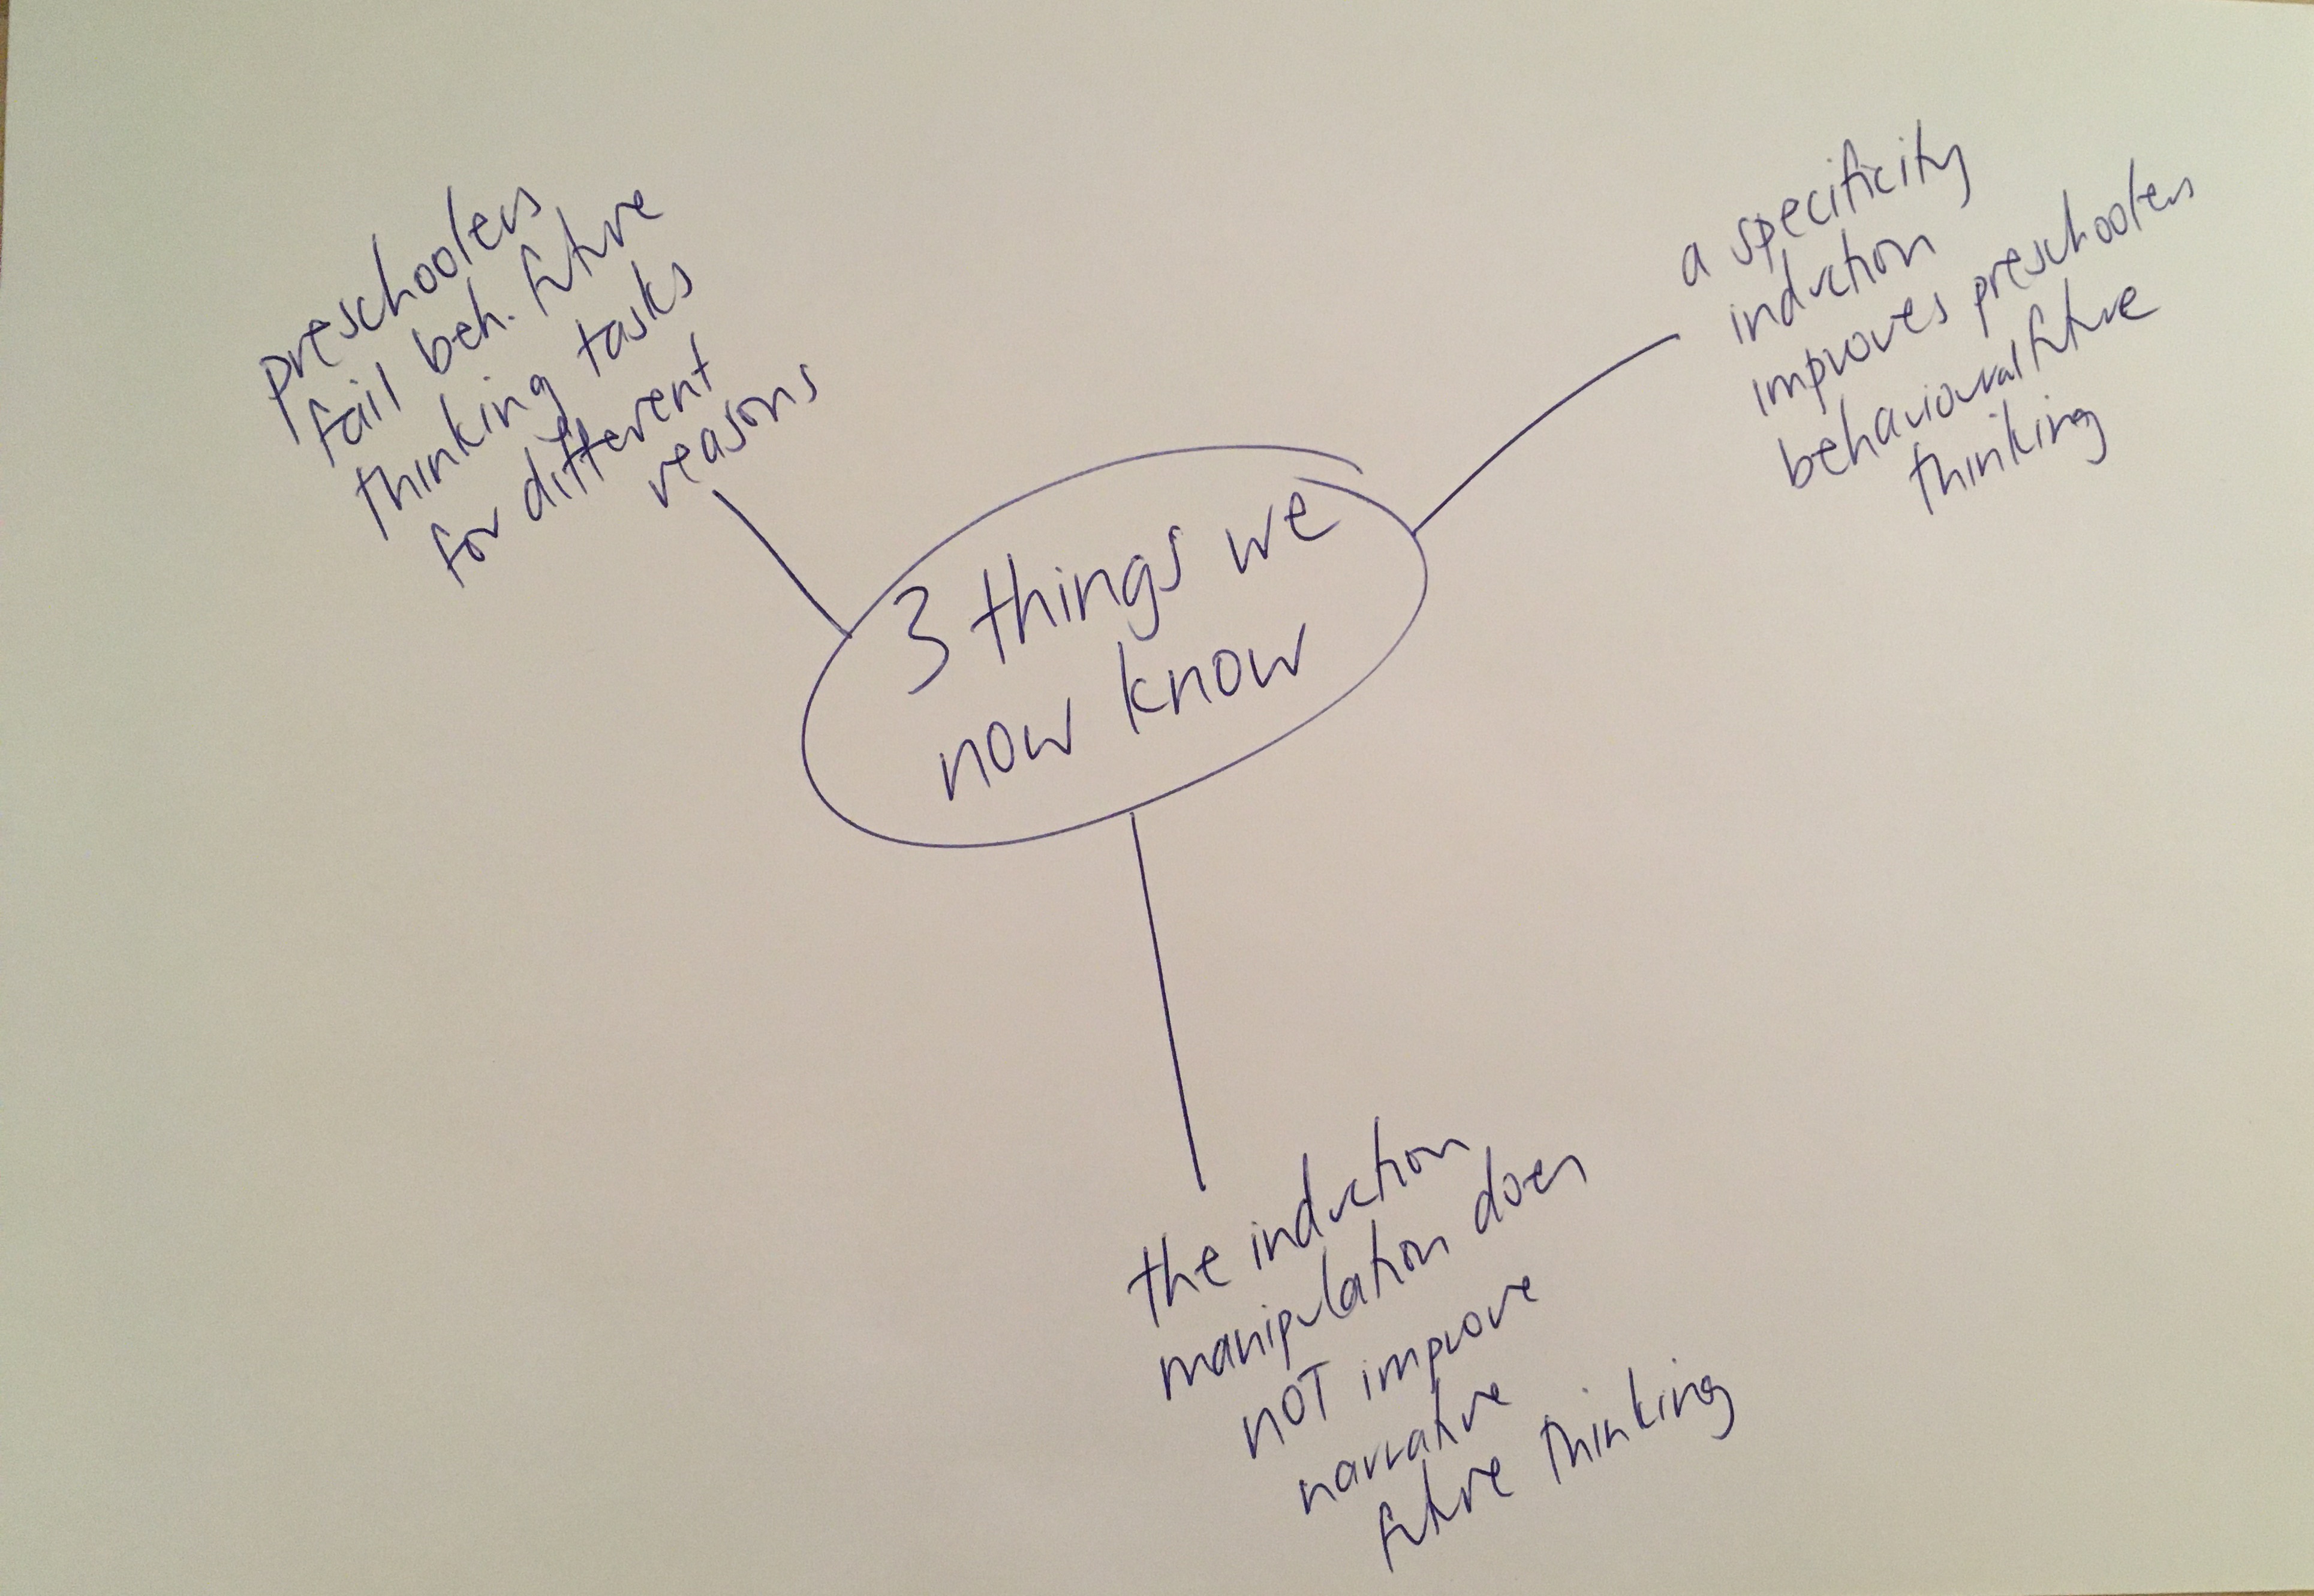 preschoolers
fail beh. future
thinking tasks
for different
reasons
a specificity
induction
improves preschoolers
behavioural future
thinking
3 things we
now know
the induction
manipulation does
NOT improve
narrative
future thinking